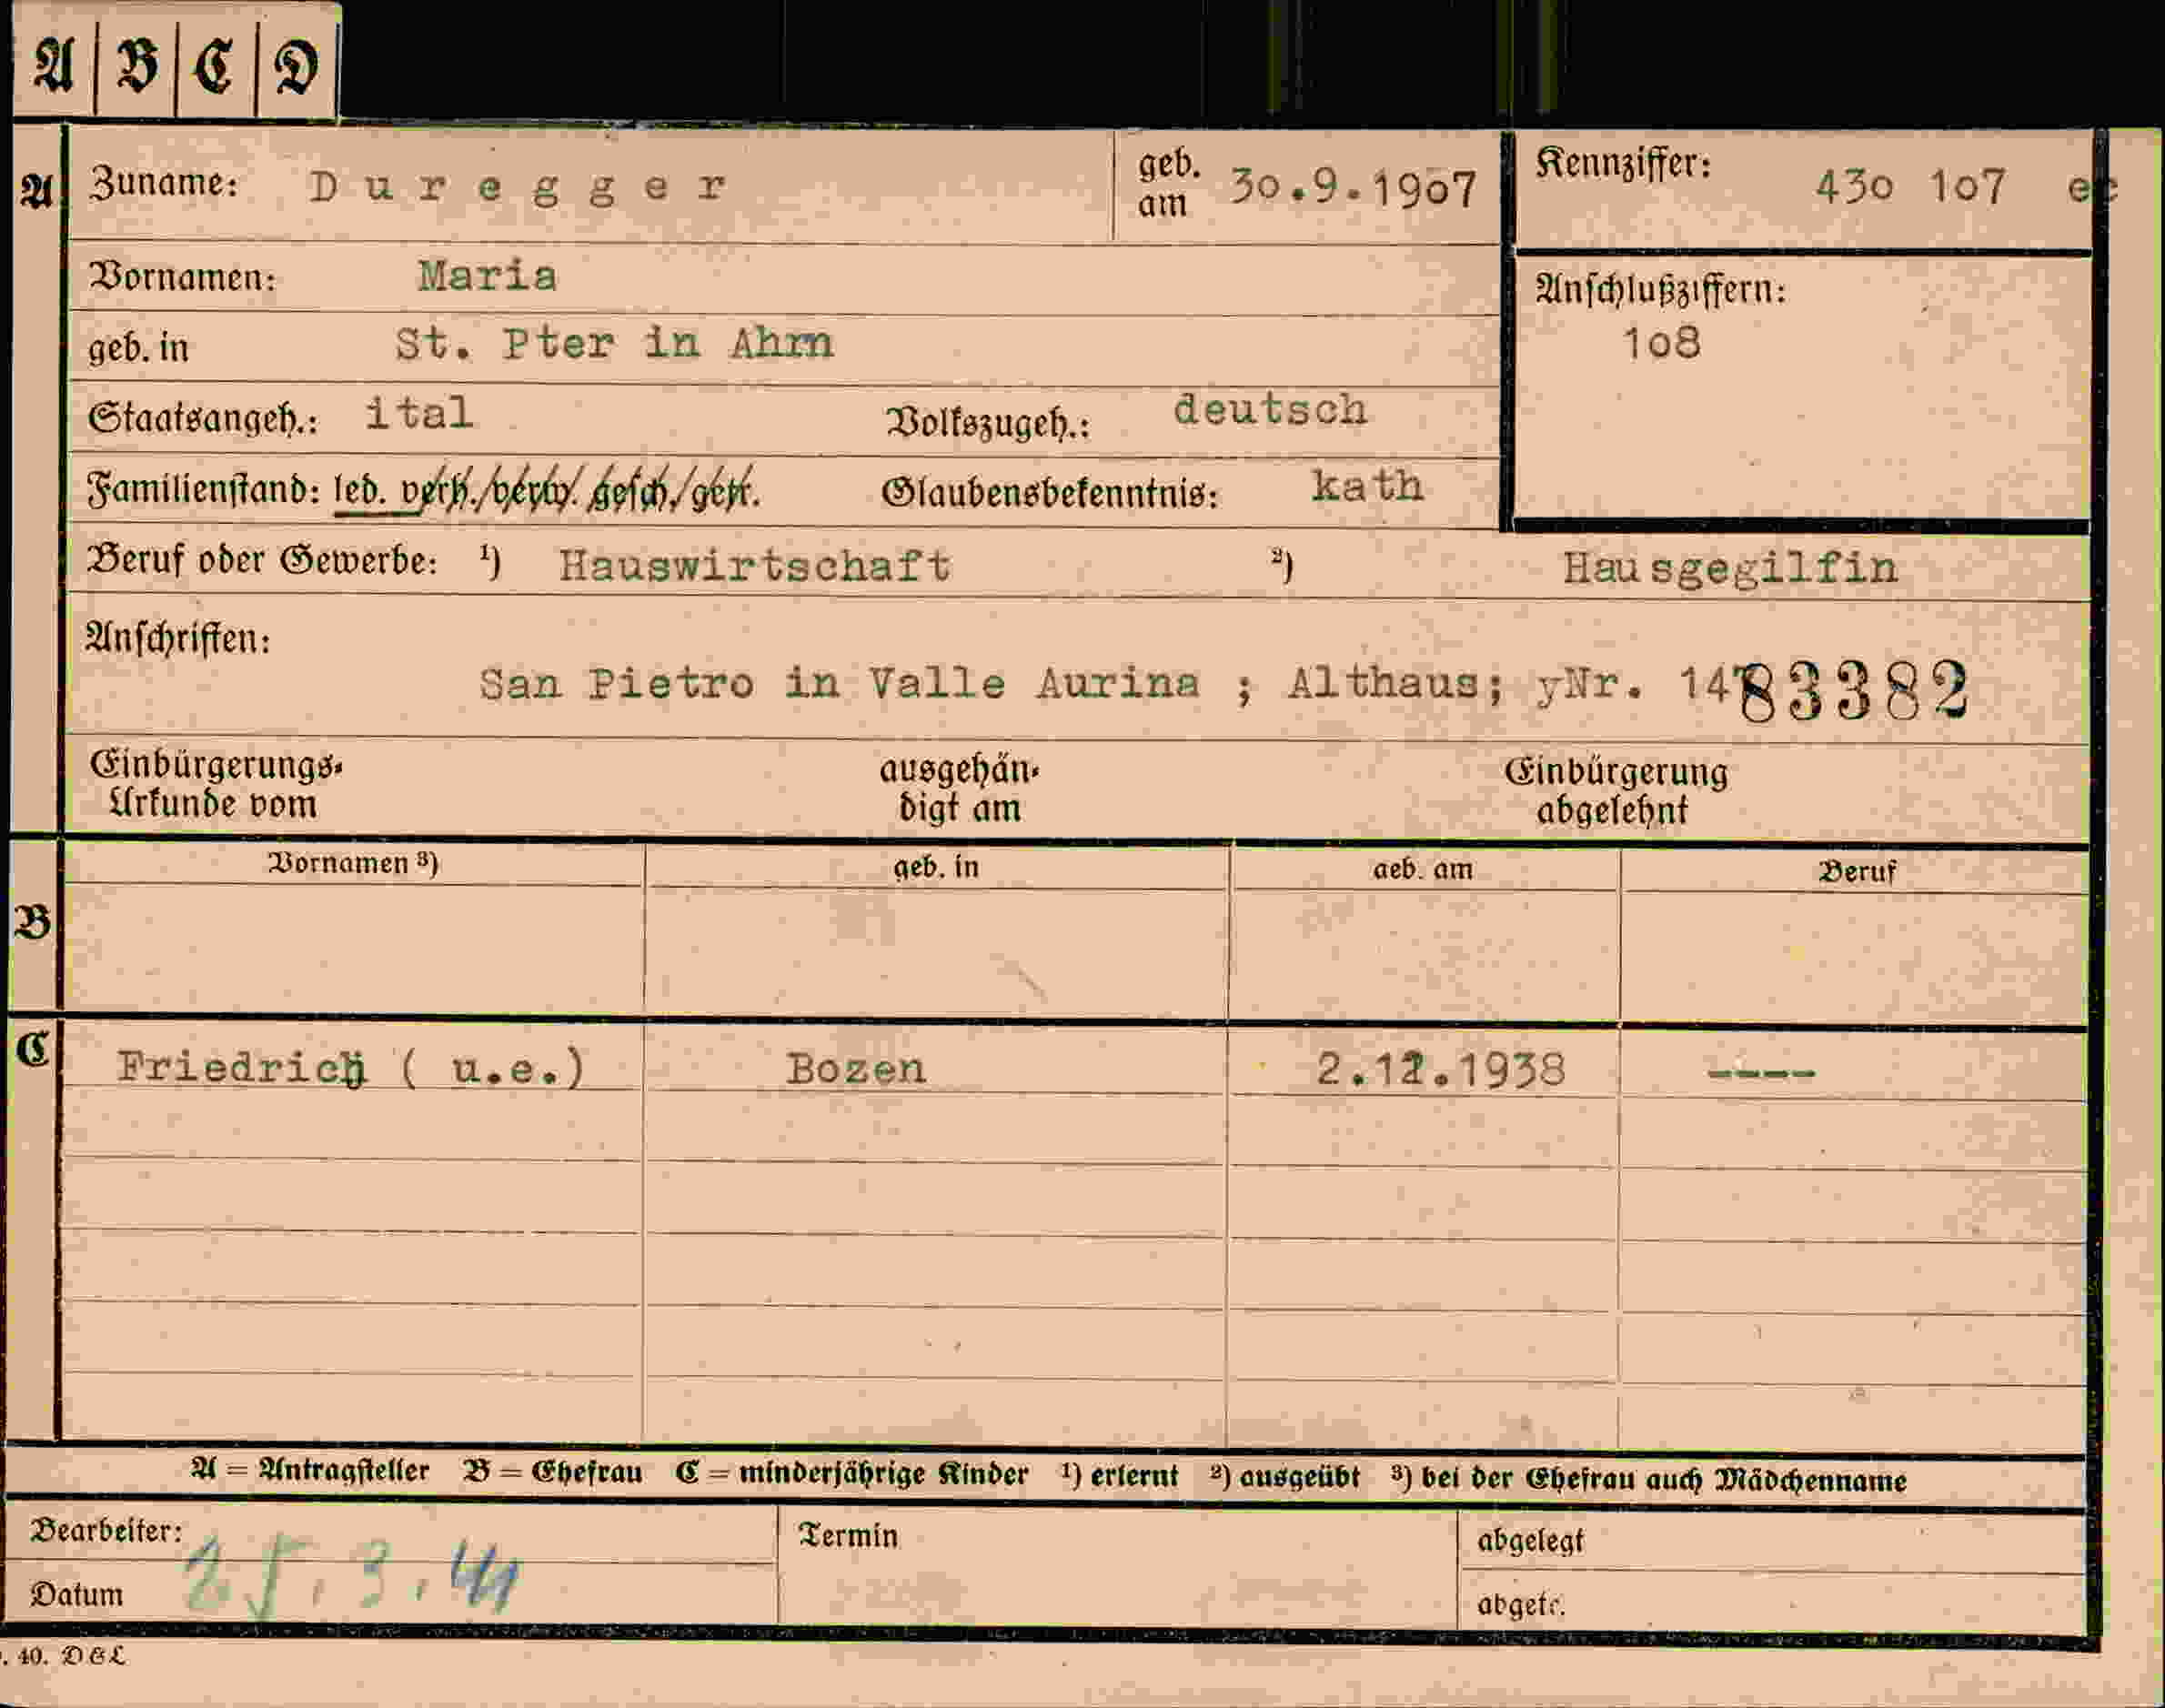 A B C D
A Zuname: Duregger geb. am 30.9.1907 Kennziffer: 430 107
Vornamen: Maria Anschlußziffern:
108
geb. in St. Pter in Ahrn
Staatsangeh.: ital Volkszugeh.: deutsch
Familienstand: led. verh./verw. gesch./getr. Glaubensbekenntnis: kath
Beruf oder Gewerbe: ¹) Hauswirtschaft ²) Hausgegilfin
Anschriften:
San Pietro in Valle Aurina ; Althaus; yNr. 83382
Einbürgerungs- ausgehän- Einbürgerung
Urkunde vom digt am abgelehnt
Vornamen ³) geb. in geb. am Beruf
B
C Friedrich ( u.e.) Bozen ----
A = Antragsteller B = Ehefrau C = minderjährige Kinder ¹) erlernt ²) ausgeübt ³) bei der Ehefrau auch Mädchenname
Bearbeiter: Termin abgelegt
Datum 25.3.41 abgetr.
. 40. D&L